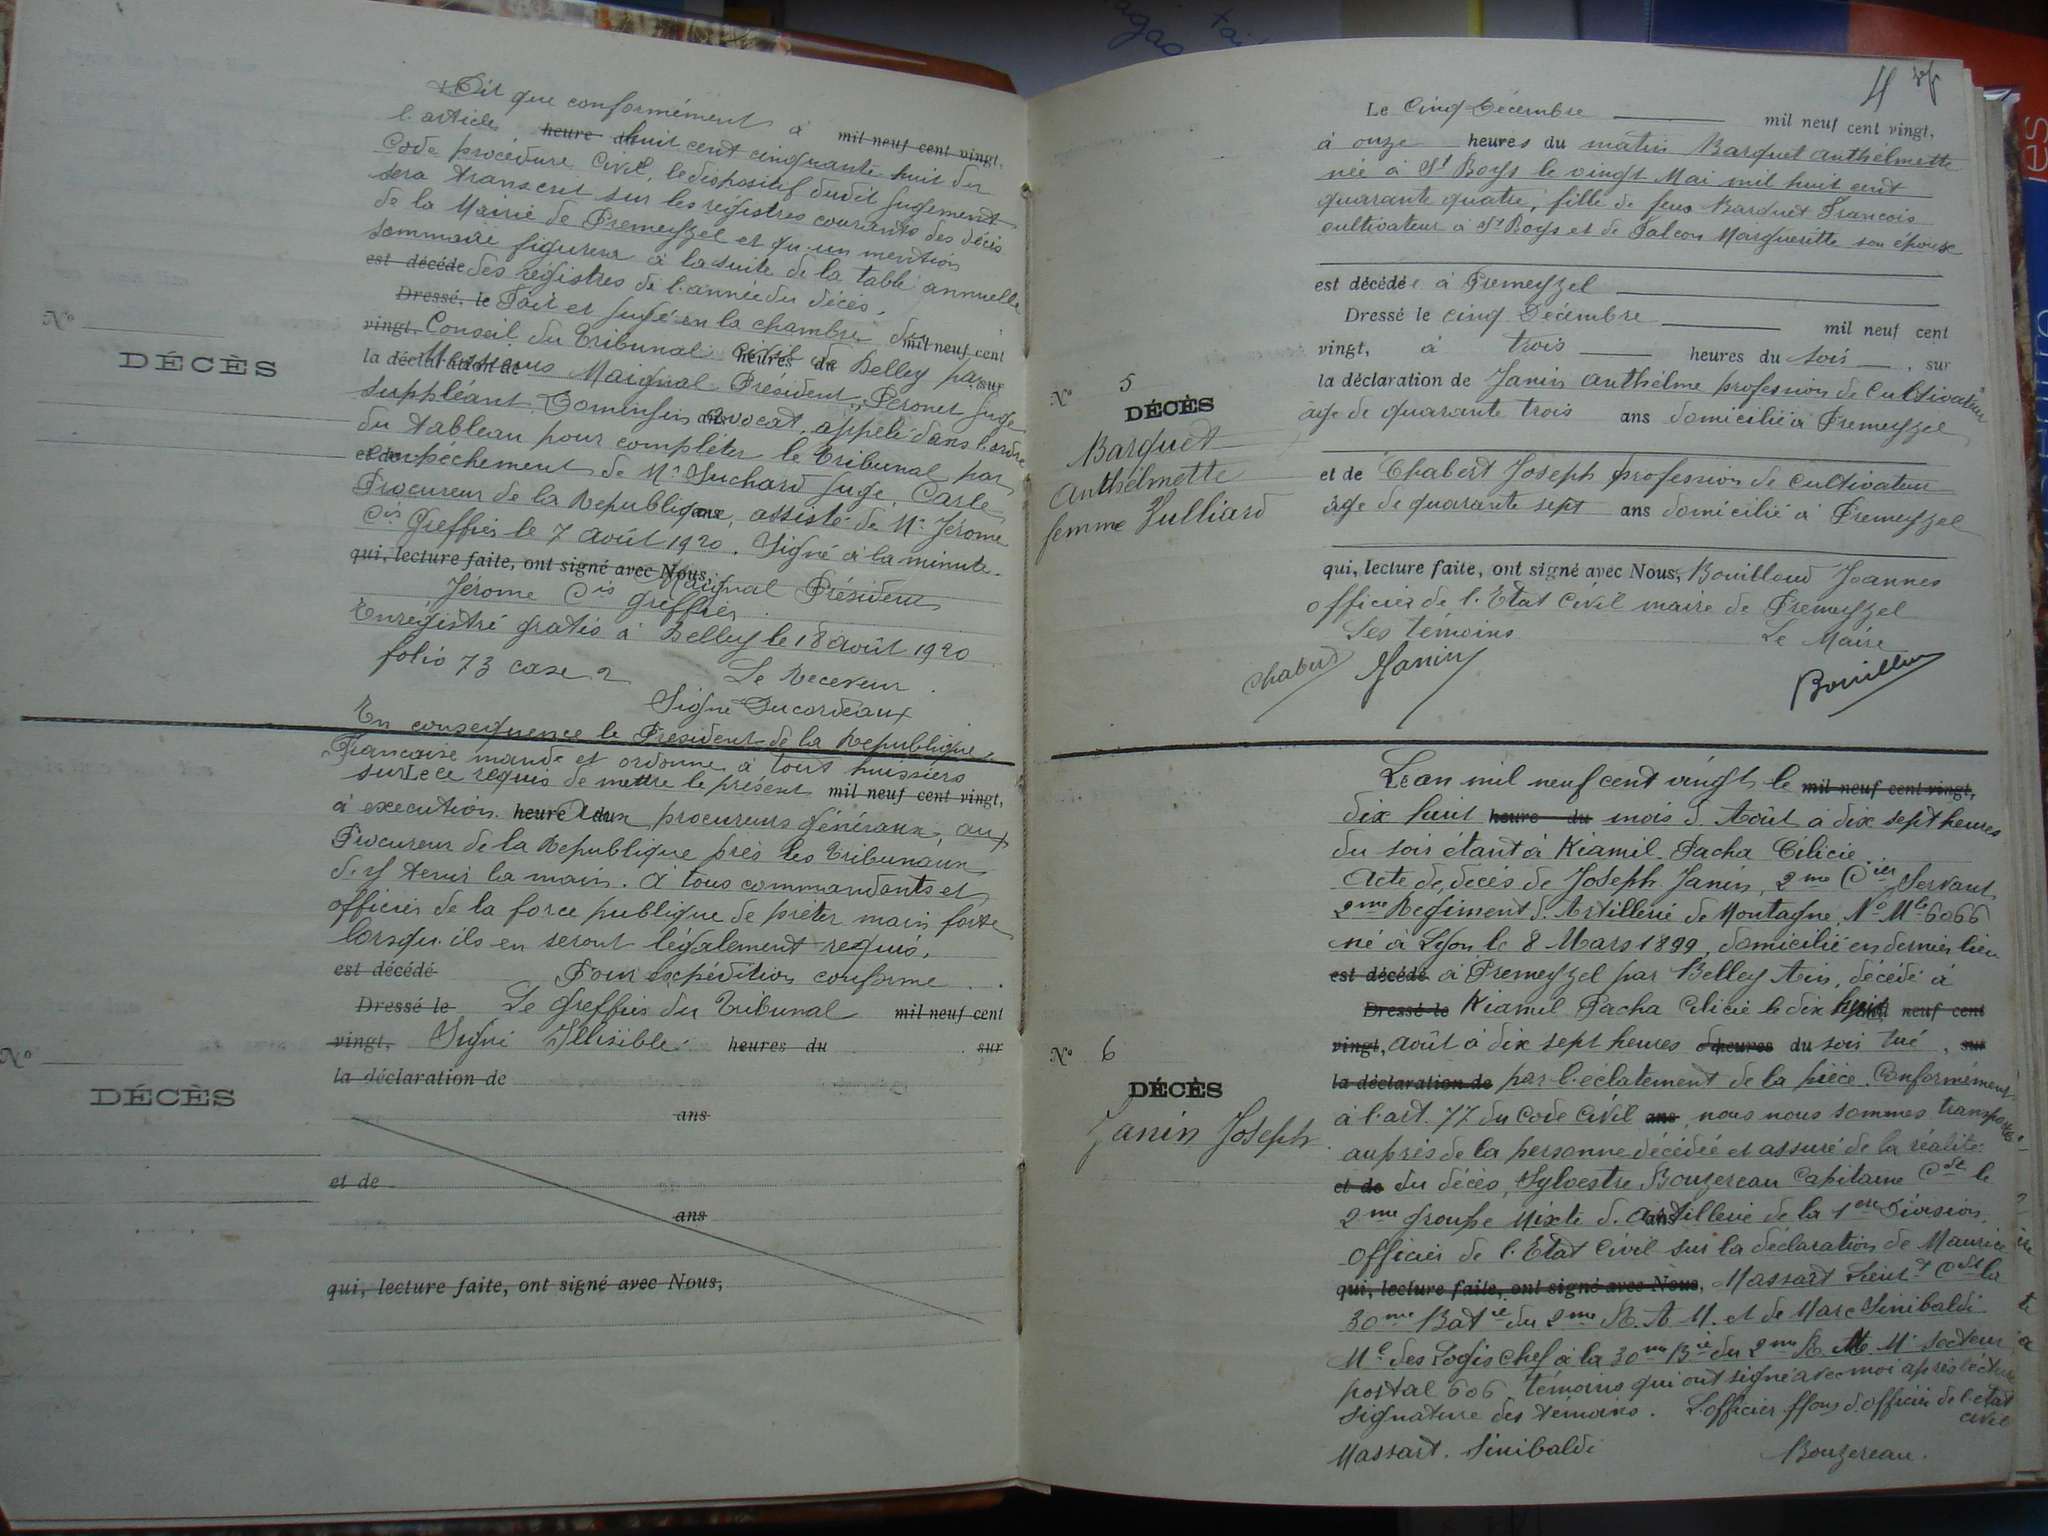 Dit que conformément à mil neuf cent vingt,
l'article heure du huit cent cinquante huit du
Code procédure Civil, le dispositif dudit jugement
sera transcrit sur les régistres courants des décès
de la Mairie de Premeyzel et qu'un mention
sommaire figurera à la suite de la table annuelle
est décédé des régistres de l'année du décès.
Dressé, le Fait et jugé en la chambre du mil neuf cent
vingt, Conseil du Tribunal civil de Belley par
heures du sur
la déclaration de Messieurs Maignal Président, Peronet juge
suppléant, avocat, appelé dans l'ordre
ans
du tableau pour compléter le Tribunal par
et de empêchement de Mr Suchard juge, Carle
Procureur de la Republique, assisté de Mr Jérome
ans
Cis Greffier le 7 Août 1920. Signé à la minute.
qui, lecture faite, ont signé avec Nous, Maignal Président
Jérome Cis Greffier
Enregistré gratis à Belley le 18 août 1920
folio 73 case 2 Le Receveur
Signé Ducordeaux
En consequence le Président de la Republique
Francaise mande et ordonne à tout huissiers
sur Le ce requis de mettre le présent mil neuf cent vingt,
à execution. heure du Aux procureurs Généraux, aux
Procureur de la Republique près les Tribunaux
d'y tenir la main. A tous commandants et
officier de la force publique de prêter main forte
lorsqu'ils en seront légalement requis.
est décédé Pour expédition conforme.
Dressé le Le Greffier du Tribunal mil neuf cent
vingt, Signé Illisible heures du sur
la déclaration de
ans
et de
ans
qui, lecture faite, ont signé avec Nous,
No
DÉCÈS
No
DÉCÈS
4
Le Cinq Décembre mil neuf cent vingt,
à onze heures du matin Barquet Anthélmette
née à St Boys le vingt Mai mil huit cent
quarante quatre, fille de feus Barquet Francois
cultivateur à St Boys et de Falcon Margueritte son épouse
est décédée à Premeyzel
Dressé le cinq Décembre mil neuf cent
vingt, à trois heures du soir, sur
la déclaration de Janin Anthélme profession de Cultivateur
âge de quarante trois ans domicilié à Premeyzel
et de Chabert Joseph profession de Cultivateur
âge de quarante sept ans domicilié à Premeyzel
qui, lecture faite, ont signé avec Nous, Bouilloud Joannes
officier de l'Etat Civil maire de Premeyzel
Les témoins Le Maire
Chabert Janin Bouilloud
No 5
DÉCÈS
Barquet
Anthélmette
femme Julliard
Lean mil neuf cent vingt le mil neuf cent vingt,
dix huit heure du mois d'Août à dix sept heures
du soir étant à Kiamil-Pacha Cilicie.
Acte de décès de Joseph Janin, 2me Cier Servant
2me Regiment d'Artillerie de Montagne, No Mle 6066
né à Lyon le 8 Mars 1899, domicilié en dernier lieu
est décédé à Premeyzel par Belley Ain, décédé à
Dressé le Kiamil Pacha Cilicie le dix huit mil neuf cent
vingt, août à dix sept heures heures du soir tué, sur
la déclaration de par l'éclatement de la pièce. Conformément
à l'art. 77 du Code Civil ans, nous nous sommes transporté
auprès de la personne décédée et assuré de la réalité
et de du décès, Sylvestre Bouzereau Capitaine Cdt le
2me Groupe Mixte d'Artillerie de la 1ere Division,
ans
officier de l'Etat Civil sur la déclaration de Maurice
qui, lecture faite, ont signé avec Nous, Massart Lieut Cdt la
30me Batie du 2me R.A.M. et de Marc Sinibaldi
Ml des Logis Chef à la 30me Bie du 2me R.A.M. secteur
postal 606, témoins qui ont signé avec moi après lecture
signature des témoins. L'officier ffons d'officier de l'état
civil
Massart. Sinibaldi Bouzereau.
No 6
DÉCÈS
Janin Joseph